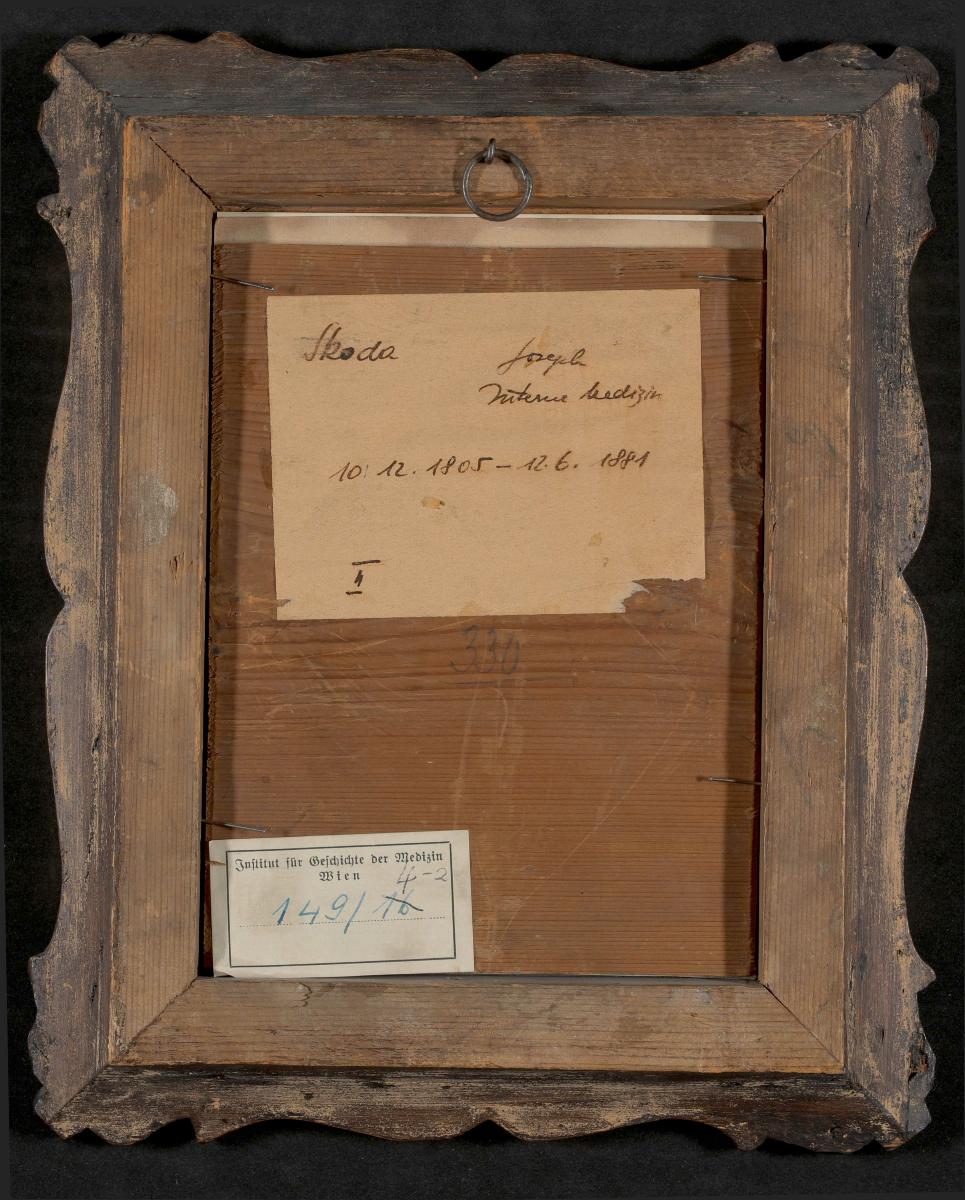 Skoda Joseph
Interne Medizin
10. 12. 1805 – 12. 6. 1881
II
330
Institut für Geschichte der Medizin
Wien
4-2
149/16